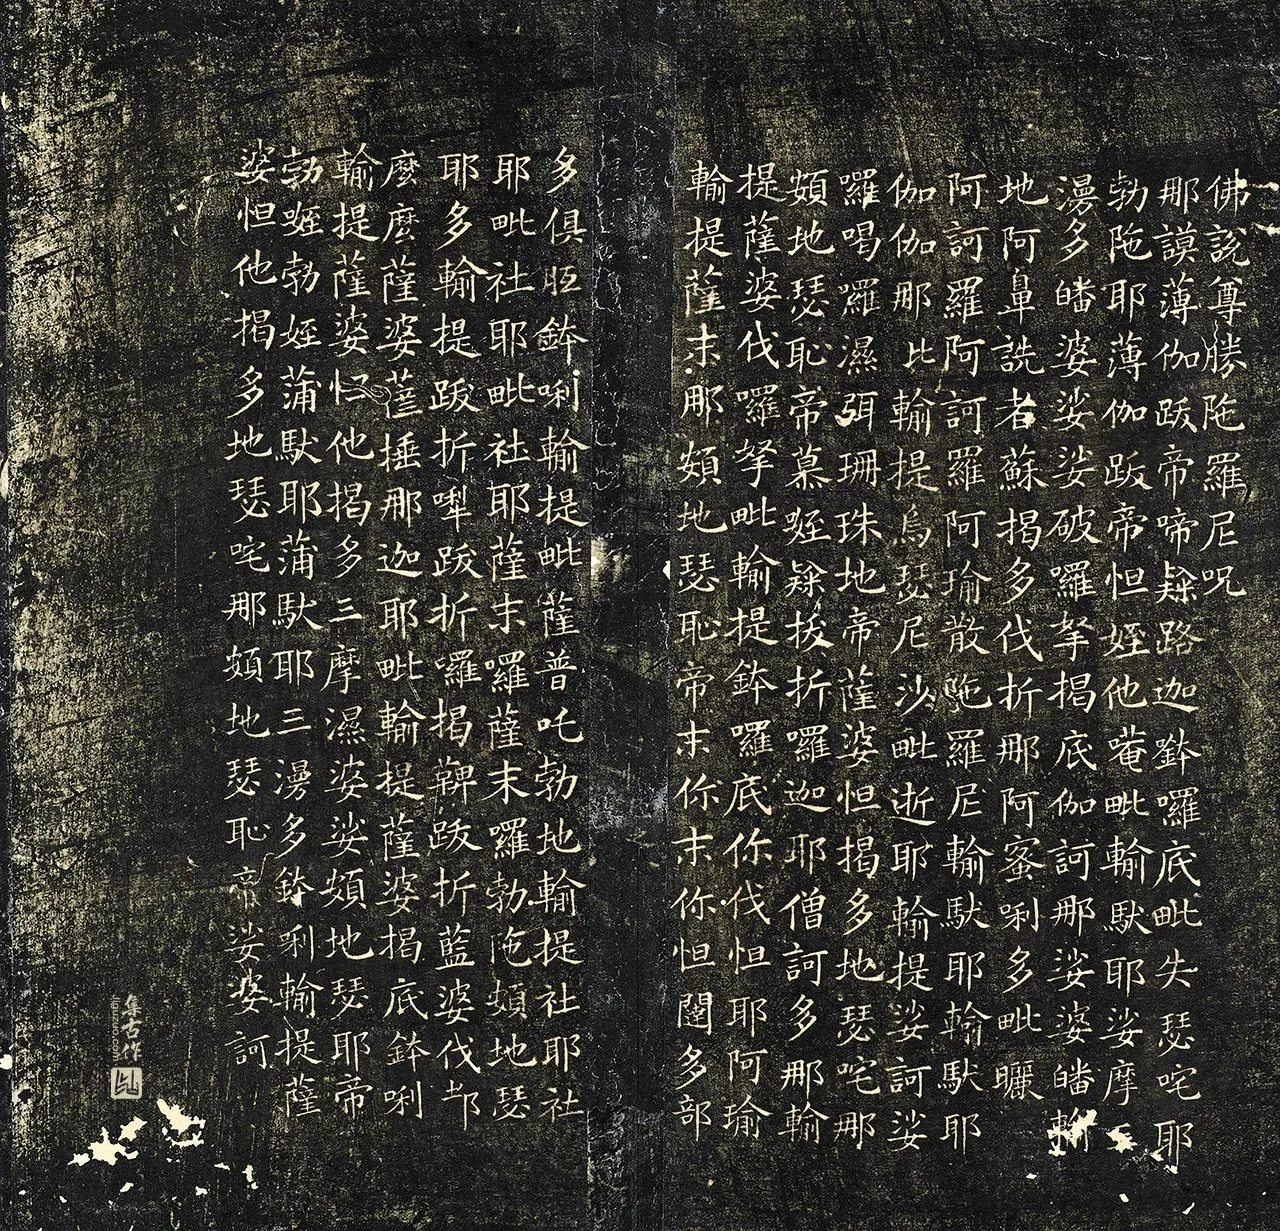 佛說尊勝陁羅尼呪
那謨薄伽跋帝啼隸路迦鉢囉底毗失瑟咤耶
勃陁耶薄伽跋帝怛姪他菴毗輸馱耶娑摩三
漫多皤婆娑娑破羅拏揭底伽訶那娑婆皤輸
地阿鼻詵者蘇揭多伐折那阿蜜唎多毗曬
阿訶羅阿訶羅阿瑜散陁羅尼輸馱耶輸馱耶
伽伽那比輸提烏瑟尼沙毗逝耶輸提娑訶娑
囉喝囉濕弭珊珠地帝薩婆怛揭多地瑟咤那
頞地瑟恥帝慕姪隸拔折囉迦耶僧訶多那輸
提薩婆伐囉拏毗輸提鉢囉底你伐怛耶阿瑜
輸提薩末那頞地瑟恥帝末你末你怛闥多部
多俱胝鉢唎輸提毗薩普吒勃地輸提社耶社
耶毗社耶毗社耶薩末羅薩末羅勃陁頞地瑟
耶多輸提跋折犁跋折囉揭鞞跋折藍婆伐都
麼麼薩婆薩捶那迦耶毗輸提薩婆揭底鉢唎
輸提薩婆怛他揭多三摩濕婆娑頞地瑟耶帝
勃姪勃姪蒲馱耶蒲馱耶三漫多鉢唎輸提薩
婆怛他揭多地瑟咤那頞地瑟恥帝娑婆訶
集古作